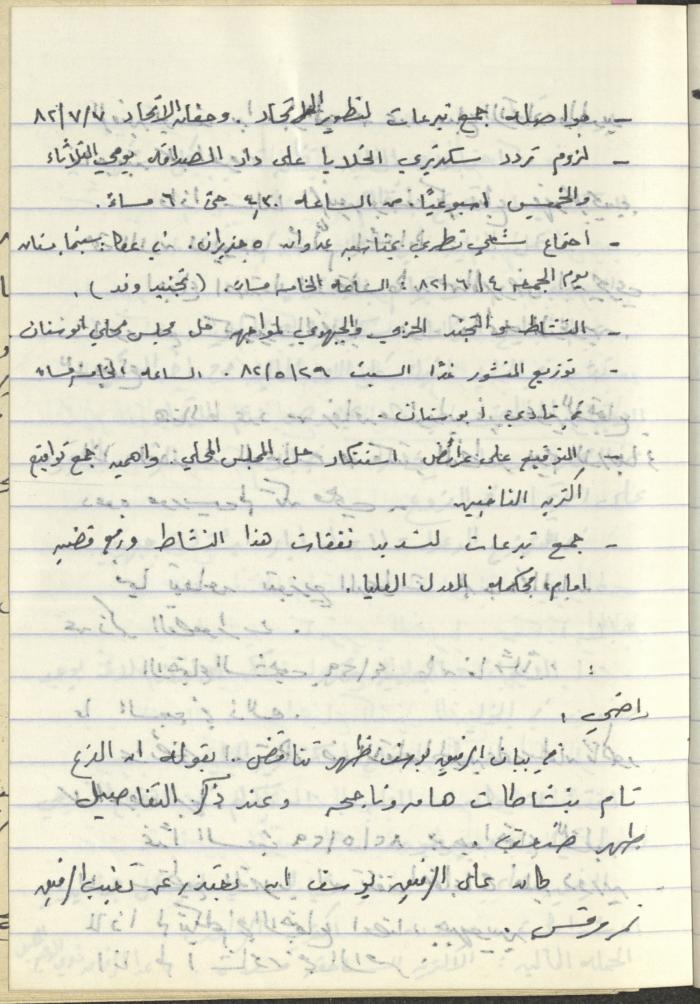 - مواصلة جمع تبرعات لتطوير الاتحاد. وحفلة الاتحاد ٨٢/٧/٧
- لزوم تردد سكرتيري الخلايا على دار الصداقه يومي الثلاثاء
والخميس اسبوعيًا. من الساعه ٤,٣٠ حتى ٦ مساءً.
- اجتماع شعبي قطري بمناسبه عدوان ٥ حزيران. في عكا: سينما بستان
يوم الجمعه ٨٢/٦/٤ الساعه الخامسه مساءً. (تجنيد وفد).
- النشاط والتجند الحزبي والجبهوي لمواجهة حل مجلس محلي ابوسنان
- توزيع المنشور غدًا السبت ٨٢/٥/٢٩. الساعه الخامسه مساءً
في نادي ابوسنان.
- التوقيع على عرائض استنكار حل المجلس المحلي. واهمية جمع تواقيع
اكثرية الناخبين
- جمع تبرعات لتسديد نفقات هذا النشاط ورفع قضيه
امام محكمة العدل العليا.
راضي:
في بيان الرفيق يوسف ظهر تناقض.. بقوله ان الفرع
قام بنشاطات هامه وناجحه وعند ذكر التفاصيل
يظهر
كان على الرفيق يوسف ان يعتذر عن تغيب الرفيق
نمر مرقس.